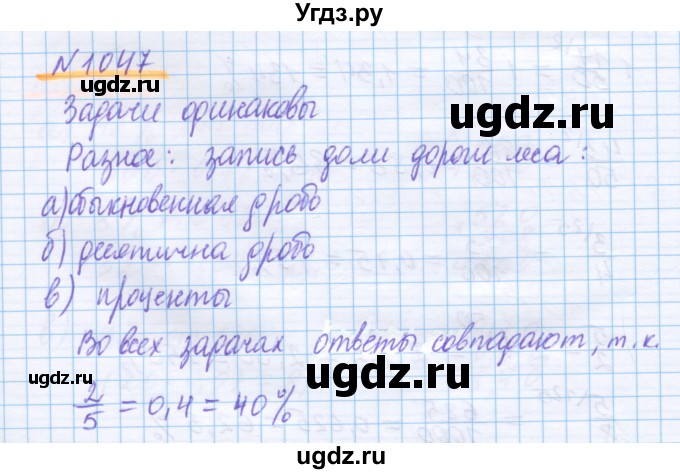 Угдз.ру
N1047
ugdz.ru
Задачи одинаковы
ugdz.ru
Разное: запись доли дороги леса:
а) обыкновенная дробь
б) десятична дробь
ugdz.ru
в) проценты
Во всех задачах ответы совпадают, т.к.
ugdz.ru
ugdz.ru
2/5 = 0,4 = 40%
ugdz.ru